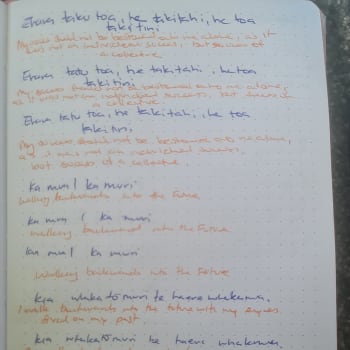 Ehara taku toa, he takitahi, he toa
takitini
My success should not be bestowed onto me alone, as it
was not an individual success, but success of
a collective
Ehara taku toa, he takitahi, he toa
takitini
My success should not be bestowed onto me alone,
as it was not an individual success, but success of
a collective.
Ehara taku toa, he takitahi, he toa
takitini
My success should not be bestowed onto me alone,
as it was not an individual success,
but success of a collective.
Ka mua / ka muri
Walking backwards into the future
Ka mua / ka muri
Walking backward into the future
Ka mua / ka muri
Walking backwards into the future
Kia whakatōmuri te haere whakamua.
I walk backwards into the future with my eyes
fixed on my past.
Kia whakatōmuri te haere whakamua.